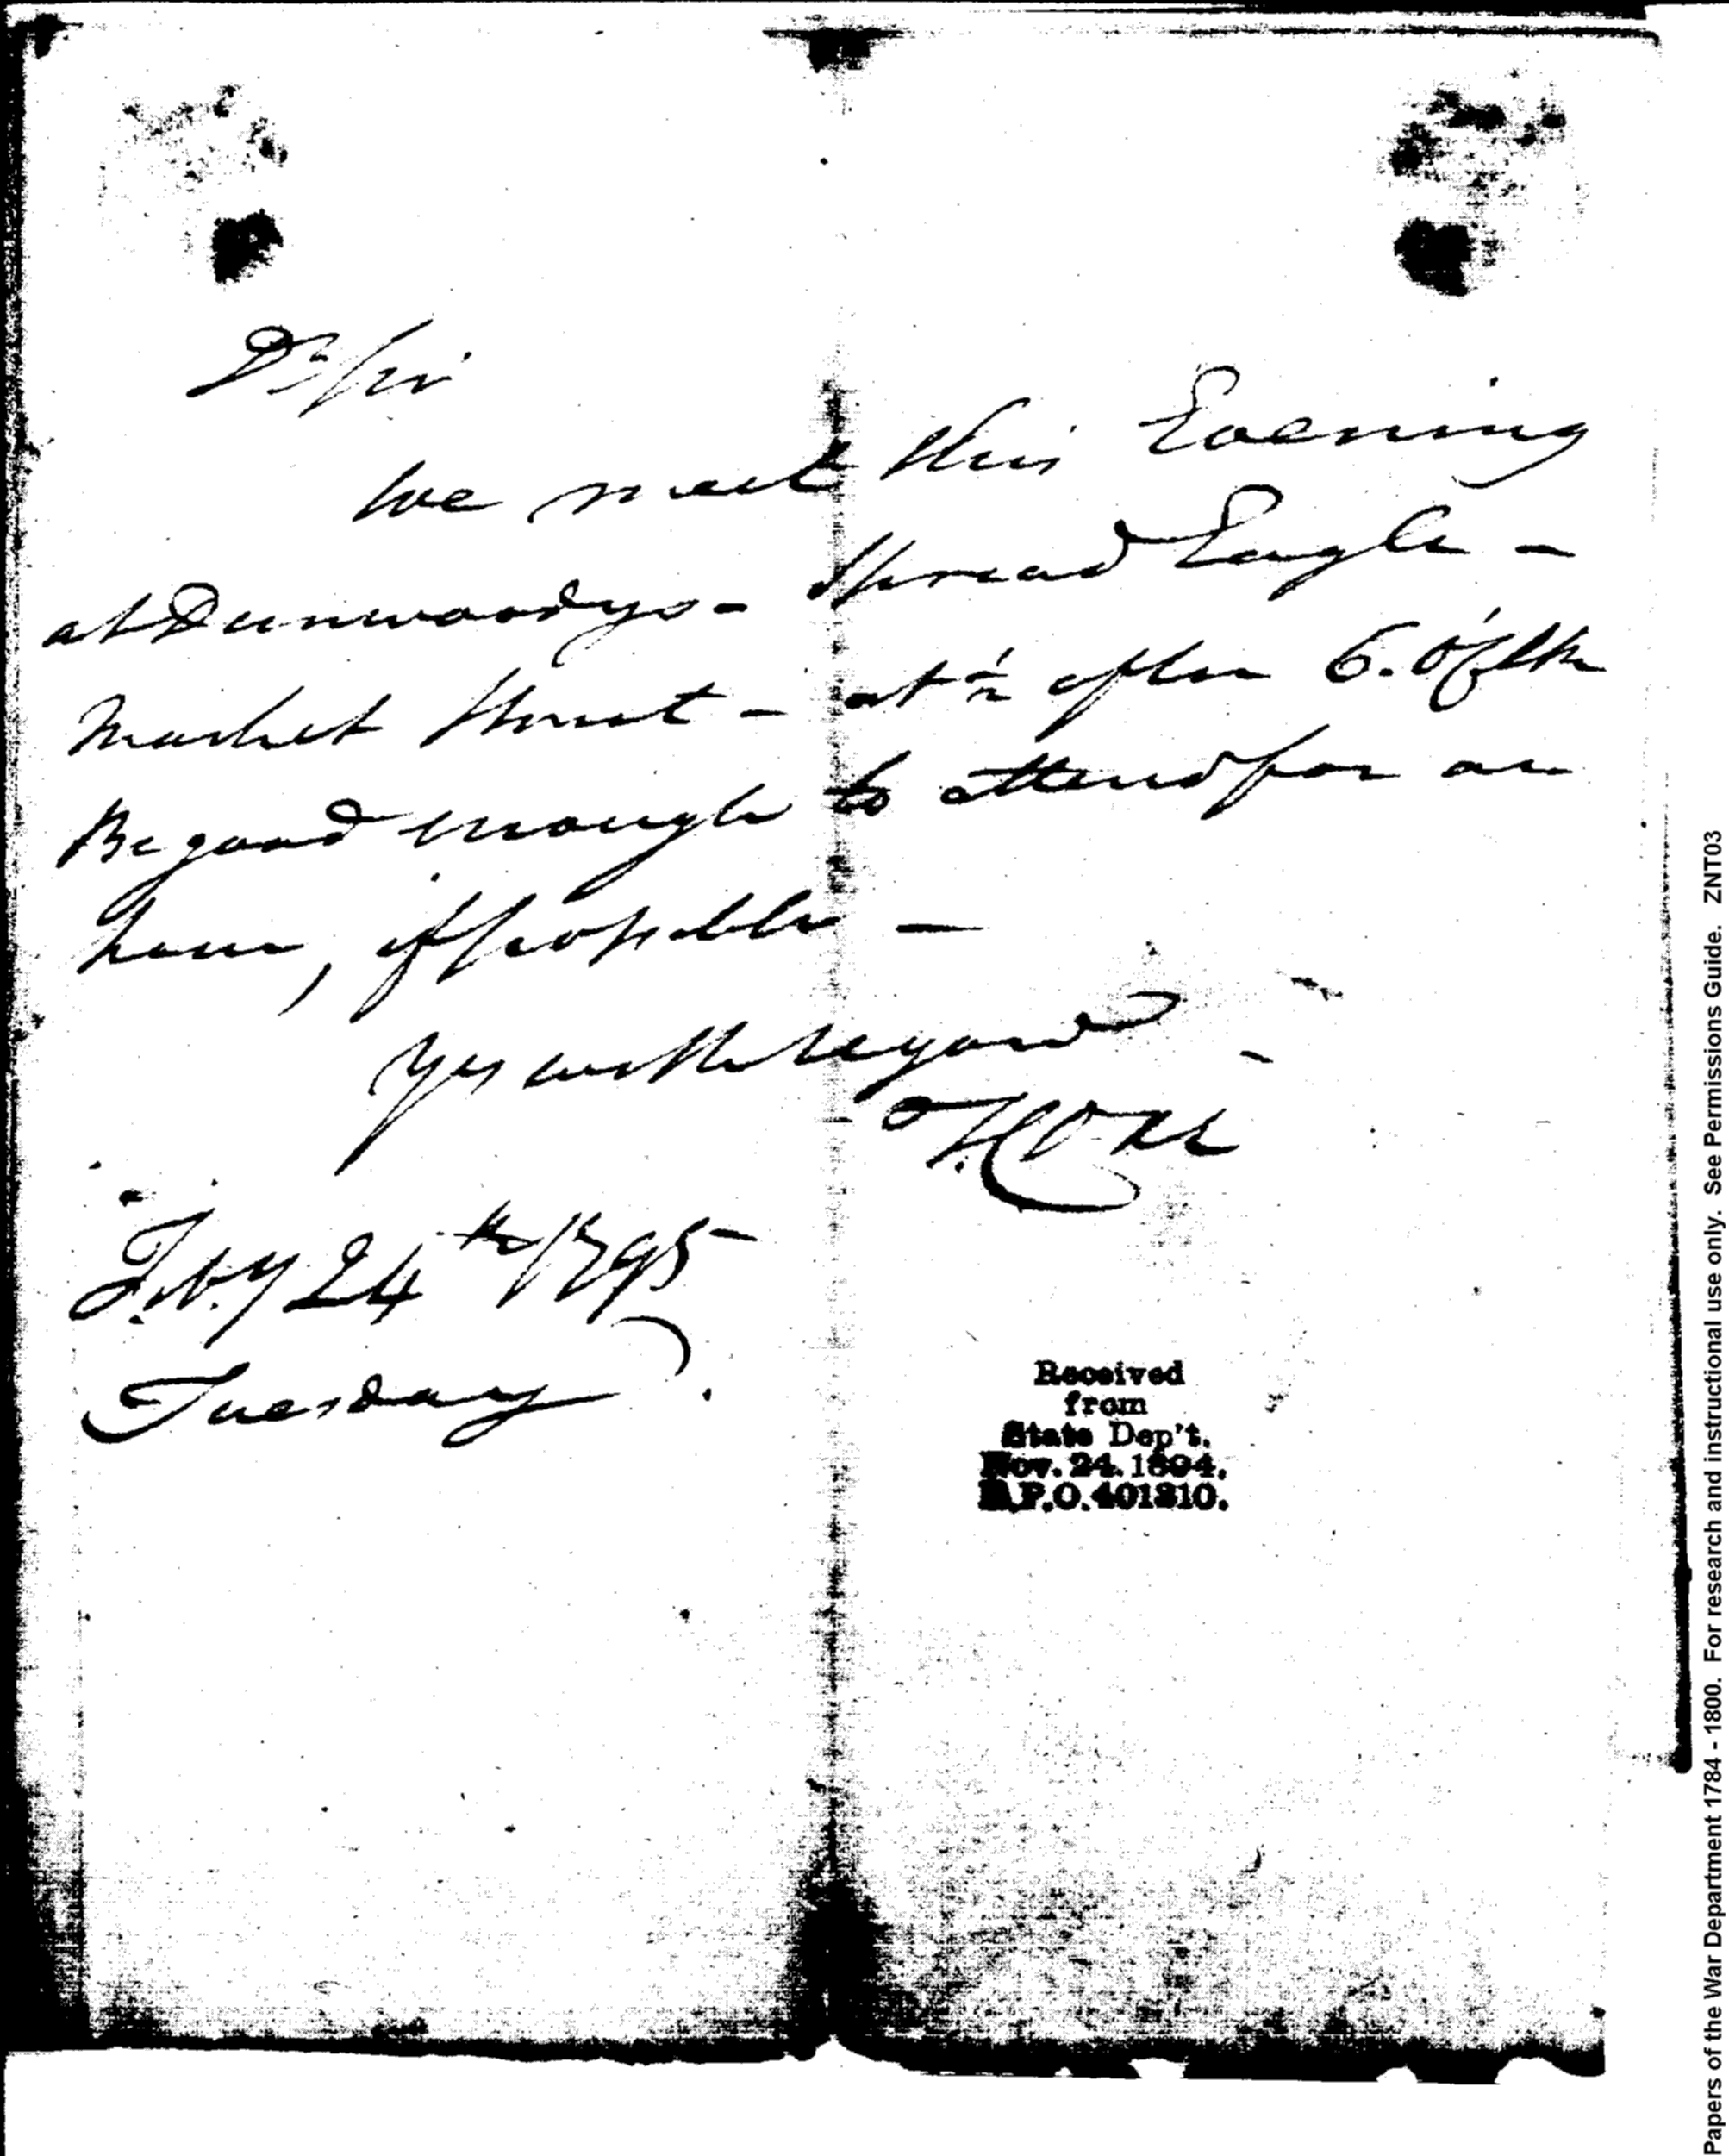 Dr Sir
We meet this Evening
at Dunwoodys - Spread Eagle -
Market Street - at ½ after 6. O'Clk
Be good enough to attend for an
hour, if possible —
Yrs with regard -
Feby 24th 1795
Tuesday.
Received
from
State Dep't.
Nov. 24. 1894.
R.P.O. 401210.
Papers of the War Department 1784 - 1800. For research and instructional use only. See Permissions Guide. ZNT03